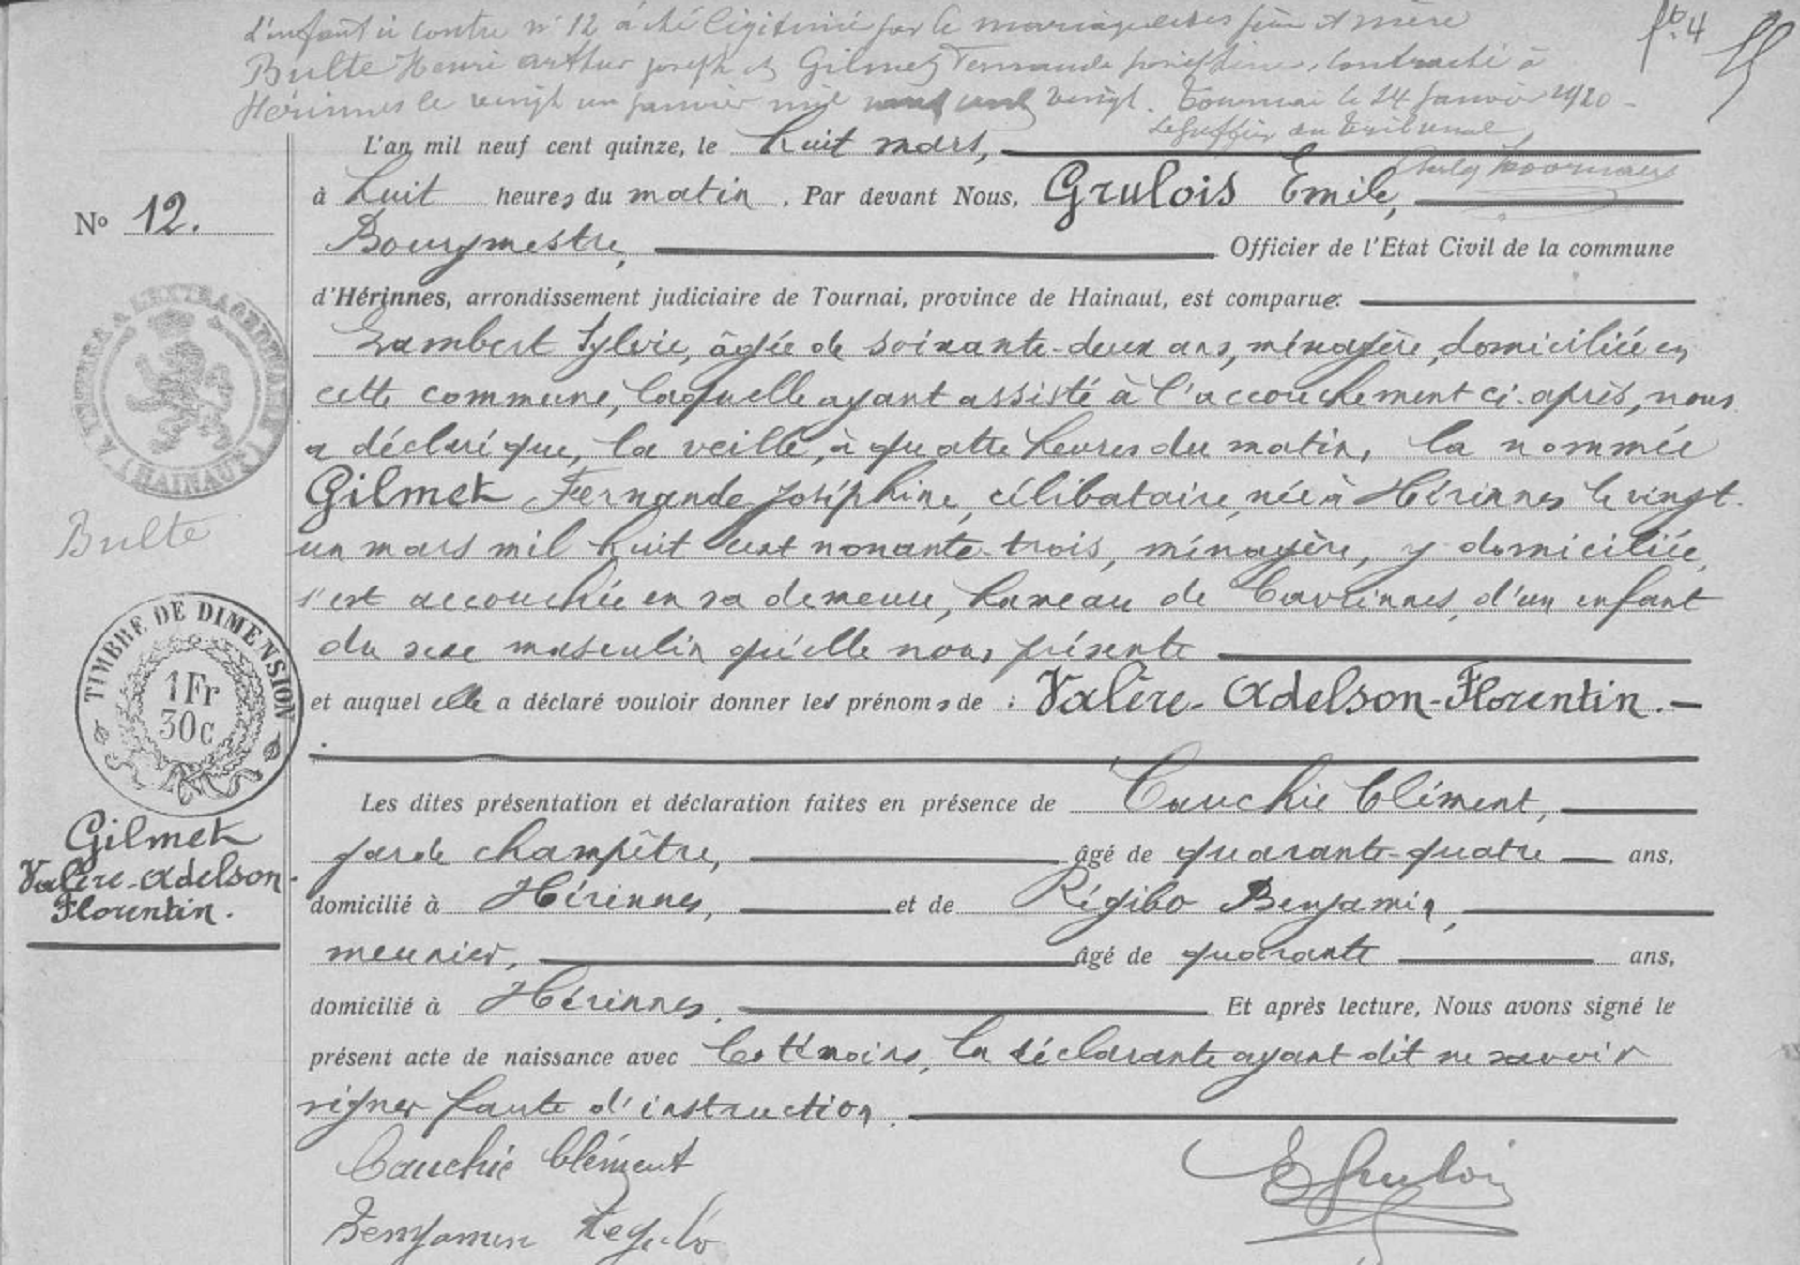 L'enfant ci contre n° 12 a été légitimé par le mariage de ses père et mère
Bulte Henri Arthur Joseph et Gilmet Fernande Joséphine, contracté à
Hérinnes le vingt un janvier mil neuf cent vingt. Tournai le 24 janvier 1920 -
Le Greffier du Tribunal
fo. 4
L'an mil neuf cent quinze, le huit mars,
à huit heures du matin. Par devant Nous, Grulois Emile,
No 12.
Bourgmestre, Officier de l'Etat Civil de la commune
d'Hérinnes, arrondissement judiciaire de Tournai, province de Hainaut, est comparue:
Lambert Sylvie, âgée de soixante-deux ans, ménagère, domiciliée en
cette commune, laquelle ayant assisté à l'accouchement ci-après, nous
a déclaré que, la veille, à quatre heures du matin, la nommée
(HAINAUT)
Gilmet Fernande-Joséphine, célibataire, née à Hérinnes le vingt-
Bulte
un mars mil huit cent nonante-trois, ménagère, y domiciliée,
s'est accouchée en sa demeure, hameau de Cavrinnes, d'un enfant
du sexe masculin qu'elle nous présente
TIMBRE DE DIMENSION
1 Fr
30c
et auquel elle a déclaré vouloir donner les prénoms de : Valère-Adelson-Florentin.
Les dites présentation et déclaration faites en présence de Cauchie Clément,
Gilmet
Valère-Adelson-
Florentin.
garde champêtre, âgé de quarante-quatre ans,
domicilié à Hérinnes, et de Régibo Benjamin,
meunier, âgé de quarante ans,
domicilié à Hérinnes. Et après lecture, Nous avons signé le
présent acte de naissance avec les témoins, la déclarante ayant dit ne savoir
signer faute d'instruction.
Cauchie Clément
E Grulois
Benjamin Regibo